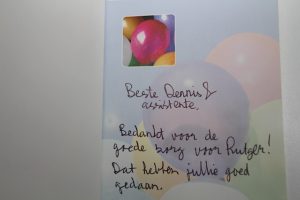 Beste Dennis &
assistente,
Bedankt voor de
goede zorg voor Rutger!
Dat hebben jullie goed
gedaan.